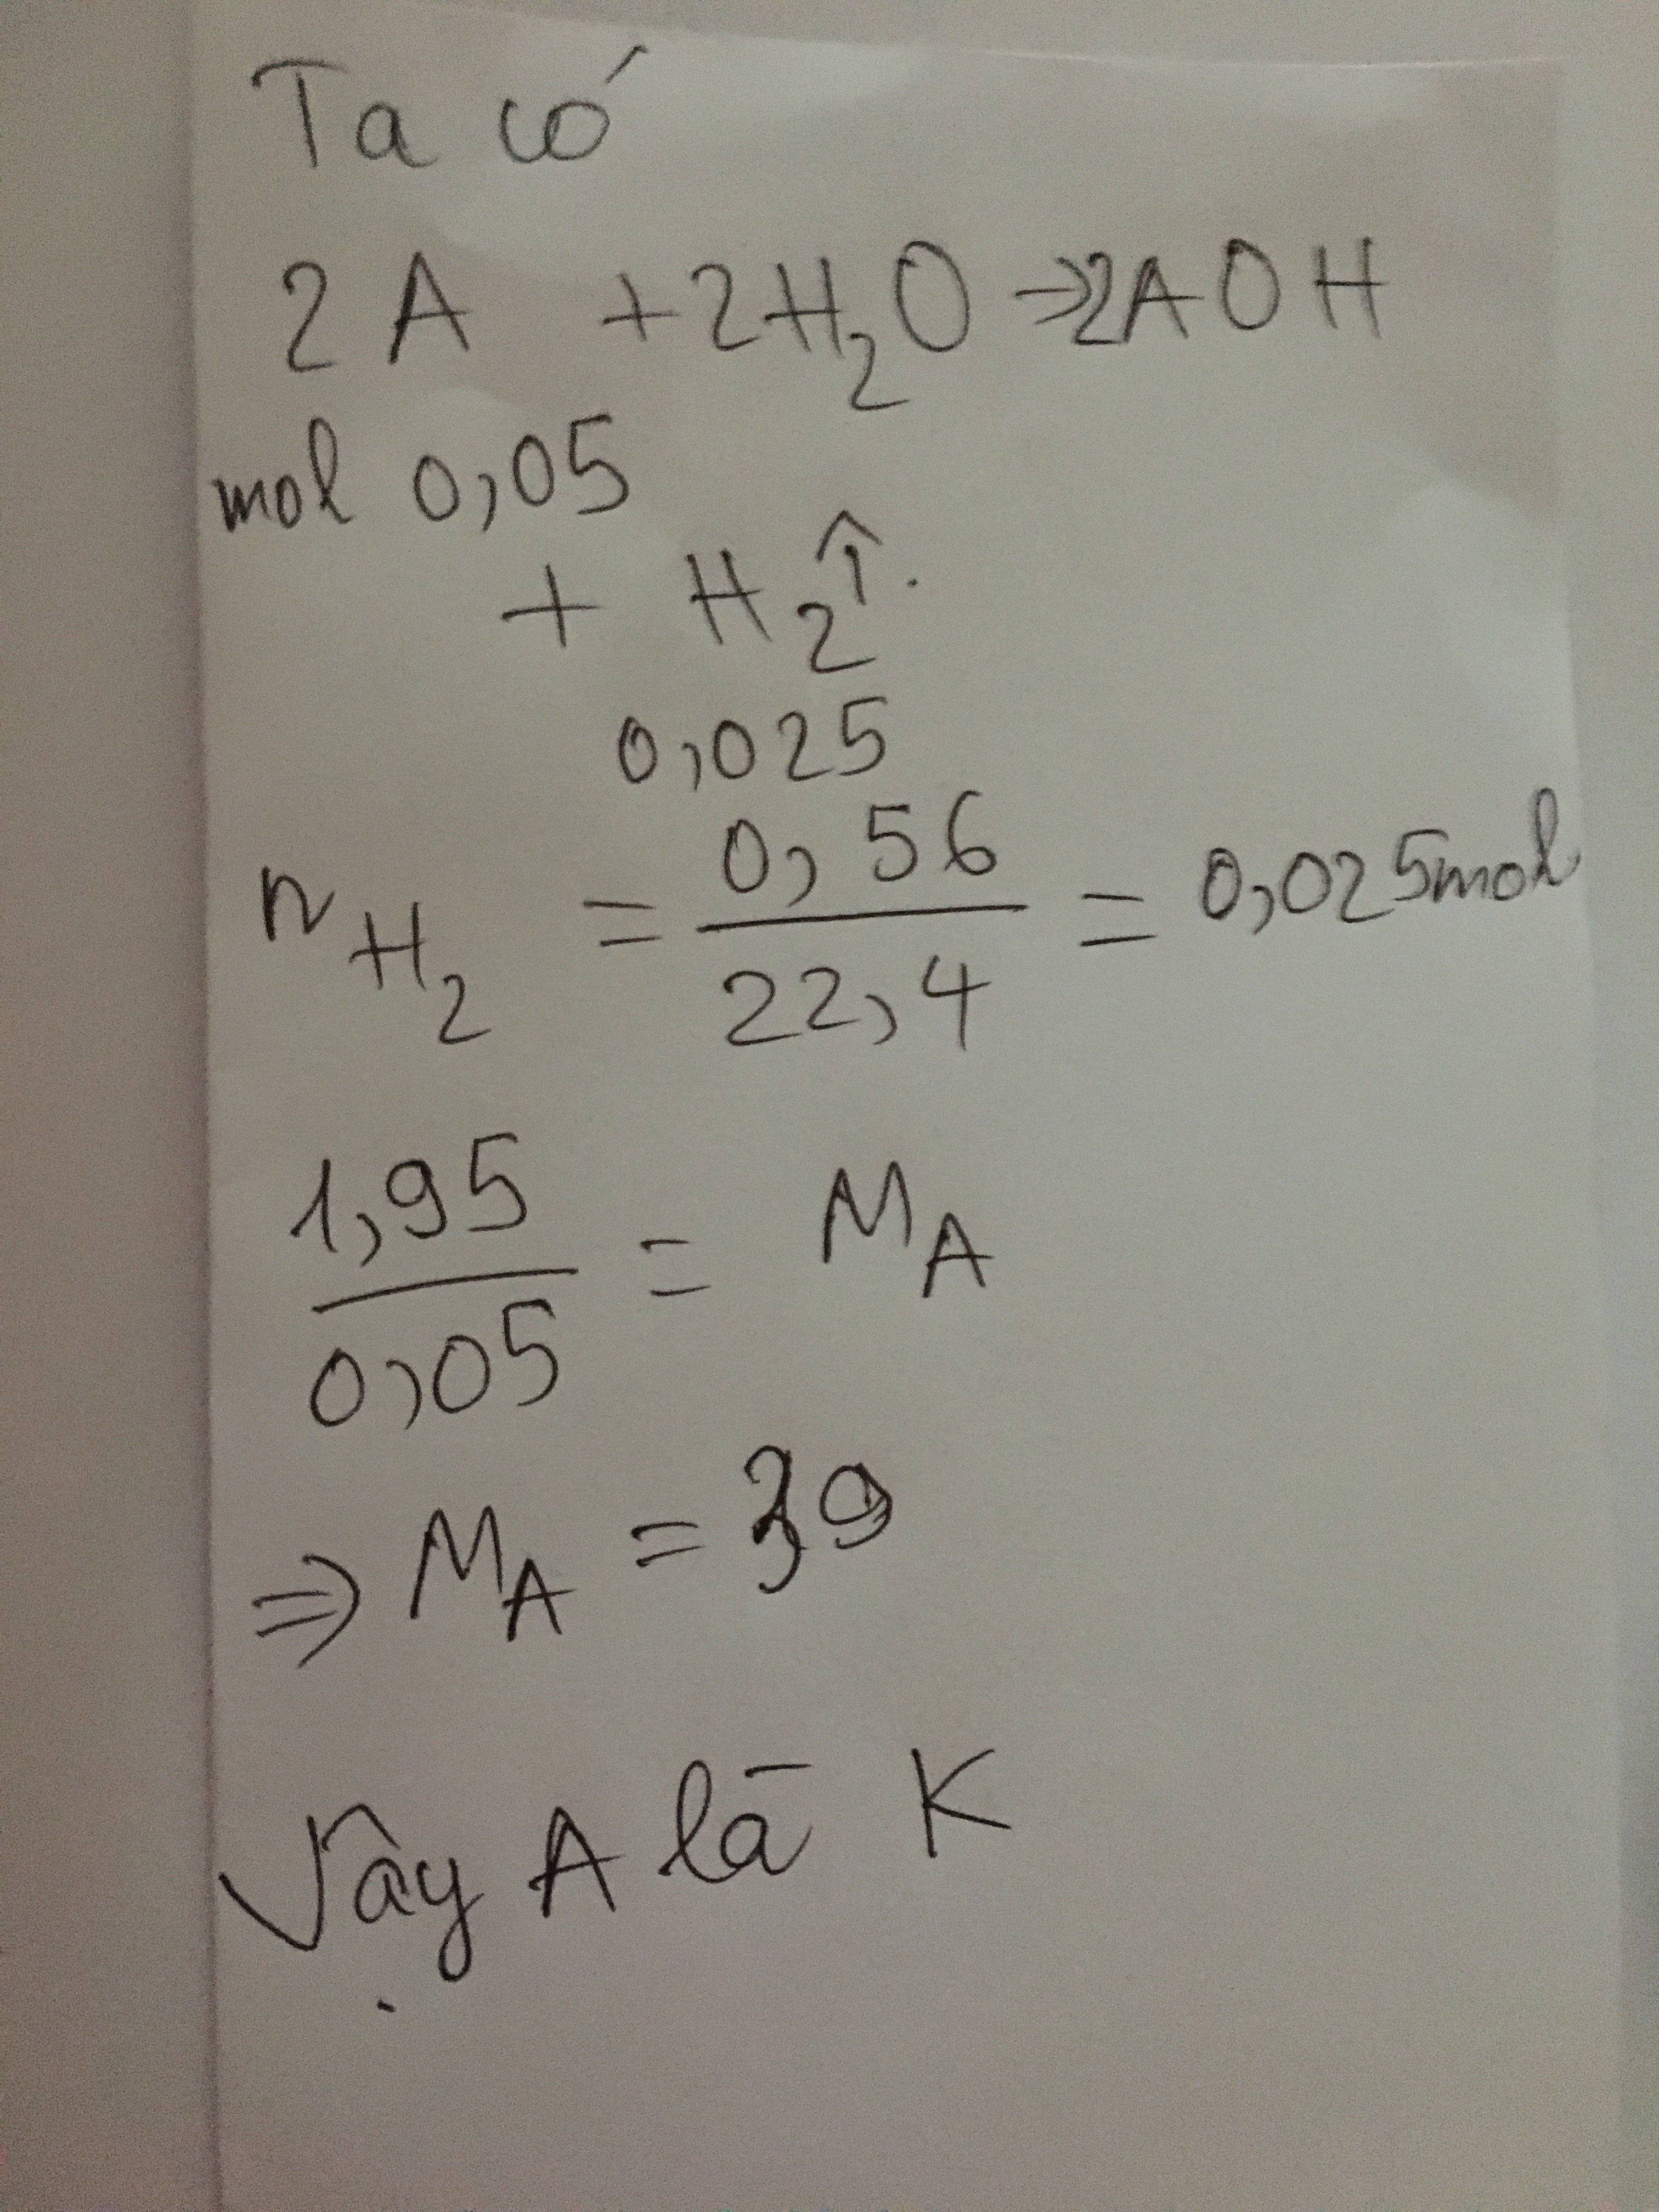 Ta có
2A + 2H₂O → 2AOH
mol 0,05
+ H₂↑.
0,025
n_H₂ = 0,56/22,4 = 0,025mol
1,95/0,05 = M_A
⇒ M_A = 39
Vậy A là K